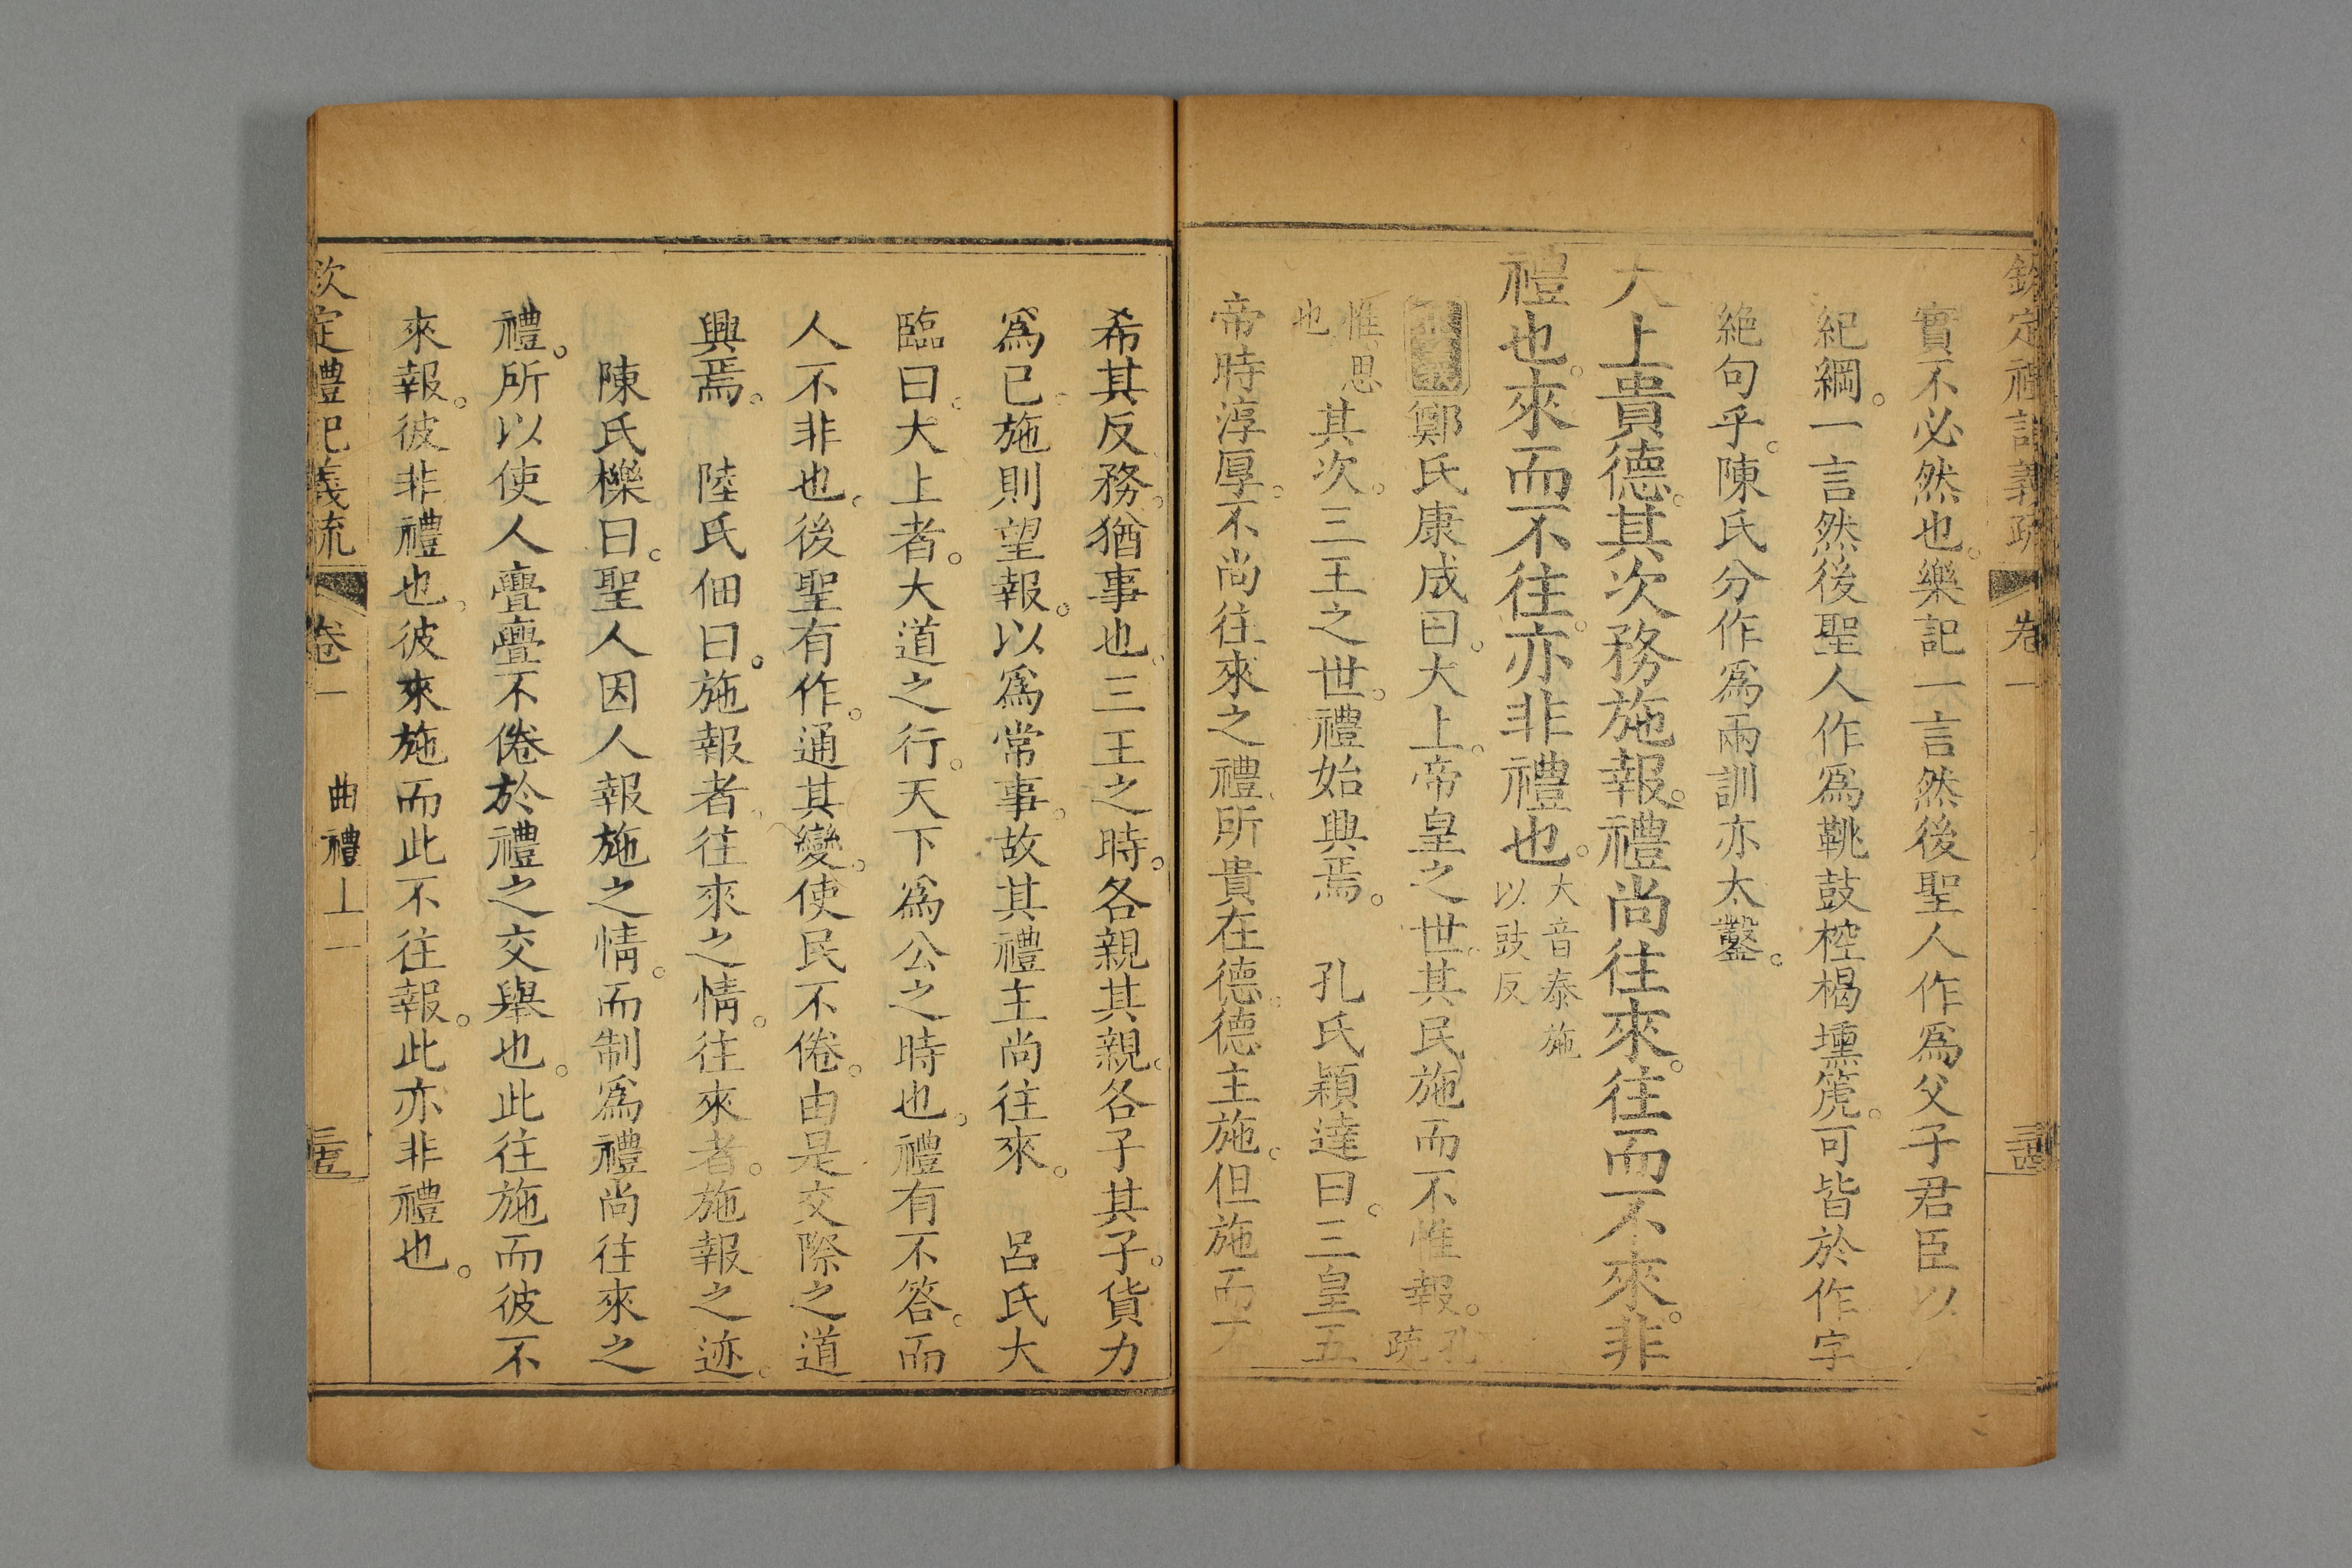 實不必然也。樂記一言然後聖人作爲父子君臣以
紀綱。一言然後聖人作爲鞉鼓椌楬壎箎。可皆於作字
絶句乎。陳氏分作爲兩訓亦太鑿。
大上貴德。其次務施報。禮尚往來。往而不來。非
禮也。來而不往。亦非禮也。大音泰施
以豉反
鄭氏康成曰。大上。帝皇之世。其民施而不惟報。孔
疏
惟思
也
其次。三王之世。禮始興焉。 孔氏穎達曰。三皇五
帝時淳厚。不尚往來之禮、所貴在德。德主施。但施而不
希其反務。猶事也。三王之時。各親其親。各子其子。貨力
爲已。施則望報。以爲常事。故其禮主尚往來。 呂氏大
臨曰。大上者。大道之行。天下爲公之時也。禮有不答。而
人不非也。後聖有作。通其變。使民不倦。由是交際之道
興焉。 陸氏佃曰。施報者、往來之情。往來者。施報之迹。
陳氏櫟曰。聖人因人報施之情。而制爲禮尚往來之
禮。所以使人亹亹不倦於禮之交舉也。此往施而彼不
來報。彼非禮也。彼來施而此不往報。此亦非禮也。
欽定禮記義疏 卷一 曲禮上一